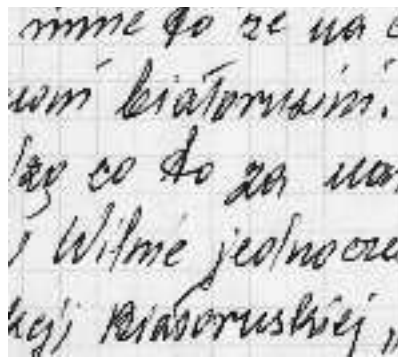 inne to że na
białoruskimi.
co to za
Wilnie jednocze
kcji Białoruskiej „